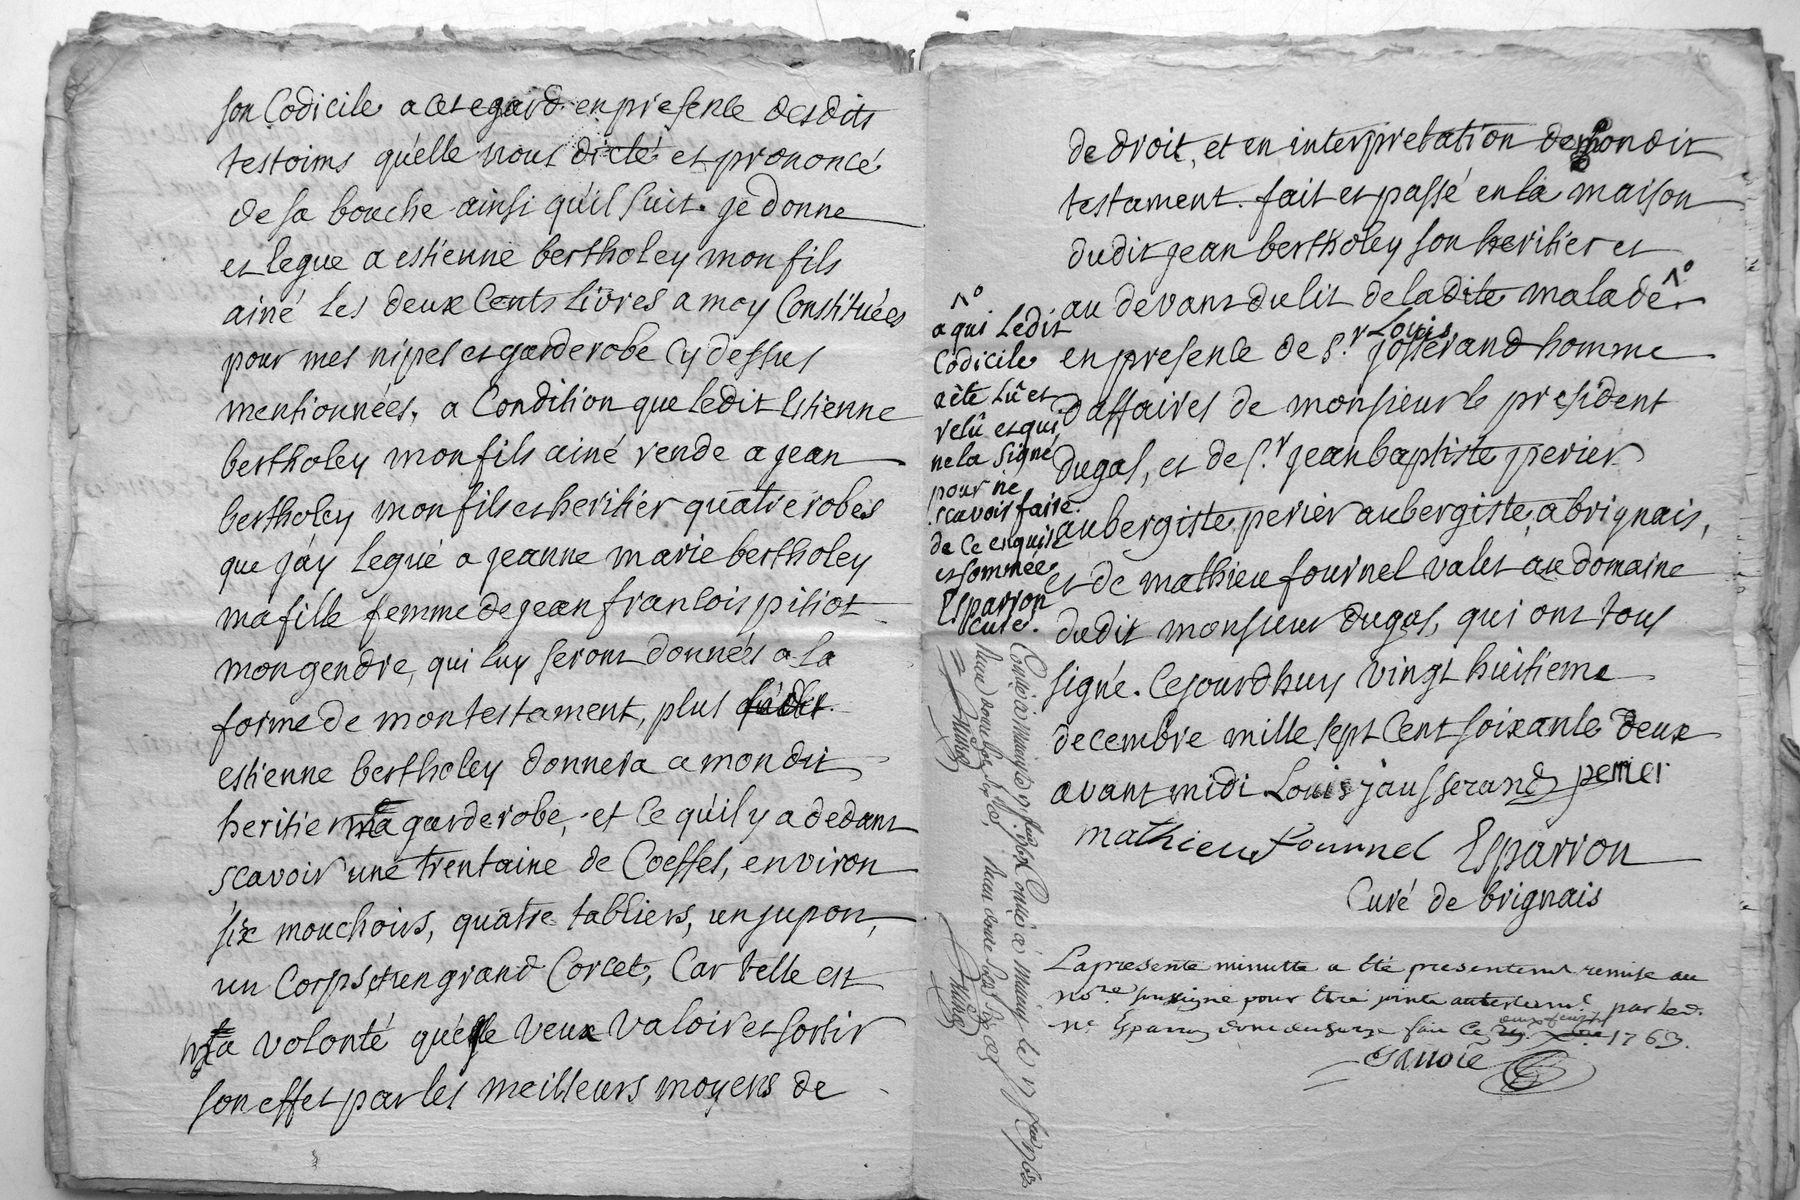 son Codicile a cet egard en presence desdits
testoims qu'elle nous dicté et prononcé
de sa bouche ainsi qu'il suit. je donne
et legue a estienne bertholey mon fils
ainé les deux Cents livres a moy Constituées
pour mes nipes et garderobe cy dessus
mentionnées, a Condition que ledit Estienne
bertholey mon fils ainé rende a jean
bertholey mon fils et heritier quatre robes
que j'ay legué a jeanne marie bertholey
ma fille femme de jean francois pitiot
mon gendre, qui luy seront donnés a la
forme de mon testament, plus
estienne bertholey donnera a mondit
heritier ma garderobe, et ce qu'il y a dedant
scavoir une trentaine de Coeffes, environ
six mouchoirs, quatre tabliers, un jupon,
un Corps et un grand Corcet, Car telle est
ma volonté qu'elle veux valoir et sortir
son effet par les meilleurs moyens de
de droit, et en interpretation de mondit
testament. fait et passé en la maison
dudit jean bertholey son heritier et
au devant du lit de ladite malade
en presence de Sr. Louis josserand homme
d'affaires de monsieur le president
dugas, et de Sr. jean baptiste perier
aubergiste perier aubergiste a brignais,
et de mathieu fournel valet au domaine
dudit monsieur dugas, qui ont tous
signé. Cejourdhuy vingt huitieme
decembre mille sept Cent soixante deux
avant midi Louis jausserand perier
mathieu fournel Esparron
Curé de brignais
a qui ledit
Codicile
a été lû et
relû et qui
ne la signé
pour ne
scavoir faire
de ce enquise
et sommée
Esparron
Curé.
La presente minutte a été presentemt remise au
nore soussigné pour etre jointe au testament par led.
Esparron 1763.